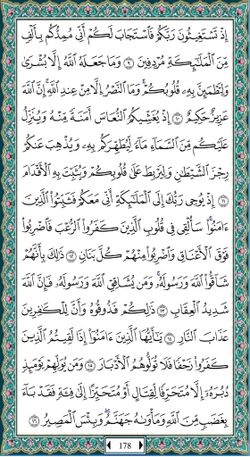 إِذْ تَسْتَغِيثُونَ رَبَّكُمْ فَٱسْتَجَابَ لَكُمْ أَنِّي مُمِدُّكُم بِأَلْفٍ
مِّنَ ٱلْمَلَـٰٓئِكَةِ مُرْدِفِينَ ٩ وَمَا جَعَلَهُ ٱللَّهُ إِلَّا بُشْرَىٰ
وَلِتَطْمَئِنَّ بِهِۦ قُلُوبُكُمْ ۚ وَمَا ٱلنَّصْرُ إِلَّا مِنْ عِندِ ٱللَّهِ ۚ إِنَّ ٱللَّهَ
عَزِيزٌ حَكِيمٌ ١٠ إِذْ يُغَشِّيكُمُ ٱلنُّعَاسَ أَمَنَةً مِّنْهُ وَيُنَزِّلُ
عَلَيْكُم مِّنَ ٱلسَّمَآءِ مَآءً لِّيُطَهِّرَكُم بِهِۦ وَيُذْهِبَ عَنكُمْ
رِجْزَ ٱلشَّيْطَـٰنِ وَلِيَرْبِطَ عَلَىٰ قُلُوبِكُمْ وَيُثَبِّتَ بِهِ ٱلْأَقْدَامَ
١١ إِذْ يُوحِي رَبُّكَ إِلَى ٱلْمَلَـٰٓئِكَةِ أَنِّي مَعَكُمْ فَثَبِّتُوا۟ ٱلَّذِينَ
ءَامَنُوا۟ ۚ سَأُلْقِي فِي قُلُوبِ ٱلَّذِينَ كَفَرُوا۟ ٱلرُّعْبَ فَٱضْرِبُوا۟
فَوْقَ ٱلْأَعْنَاقِ وَٱضْرِبُوا۟ مِنْهُمْ كُلَّ بَنَانٍ ١٢ ذَٰلِكَ بِأَنَّهُمْ
شَآقُّوا۟ ٱللَّهَ وَرَسُولَهُۥ ۚ وَمَن يُشَاقِقِ ٱللَّهَ وَرَسُولَهُۥ فَإِنَّ ٱللَّهَ
شَدِيدُ ٱلْعِقَابِ ١٣ ذَٰلِكُمْ فَذُوقُوهُ وَأَنَّ لِلْكَـٰفِرِينَ
عَذَابَ ٱلنَّارِ ١٤ يَـٰٓأَيُّهَا ٱلَّذِينَ ءَامَنُوٓا۟ إِذَا لَقِيتُمُ ٱلَّذِينَ
كَفَرُوا۟ زَحْفًا فَلَا تُوَلُّوهُمُ ٱلْأَدْبَارَ ١٥ وَمَن يُوَلِّهِمْ يَوْمَئِذٍ
دُبُرَهُۥٓ إِلَّا مُتَحَرِّفًا لِّقِتَالٍ أَوْ مُتَحَيِّزًا إِلَىٰ فِئَةٍ فَقَدْ بَآءَ
بِغَضَبٍ مِّنَ ٱللَّهِ وَمَأْوَىٰهُ جَهَنَّمُ ۖ وَبِئْسَ ٱلْمَصِيرُ ١٦
178